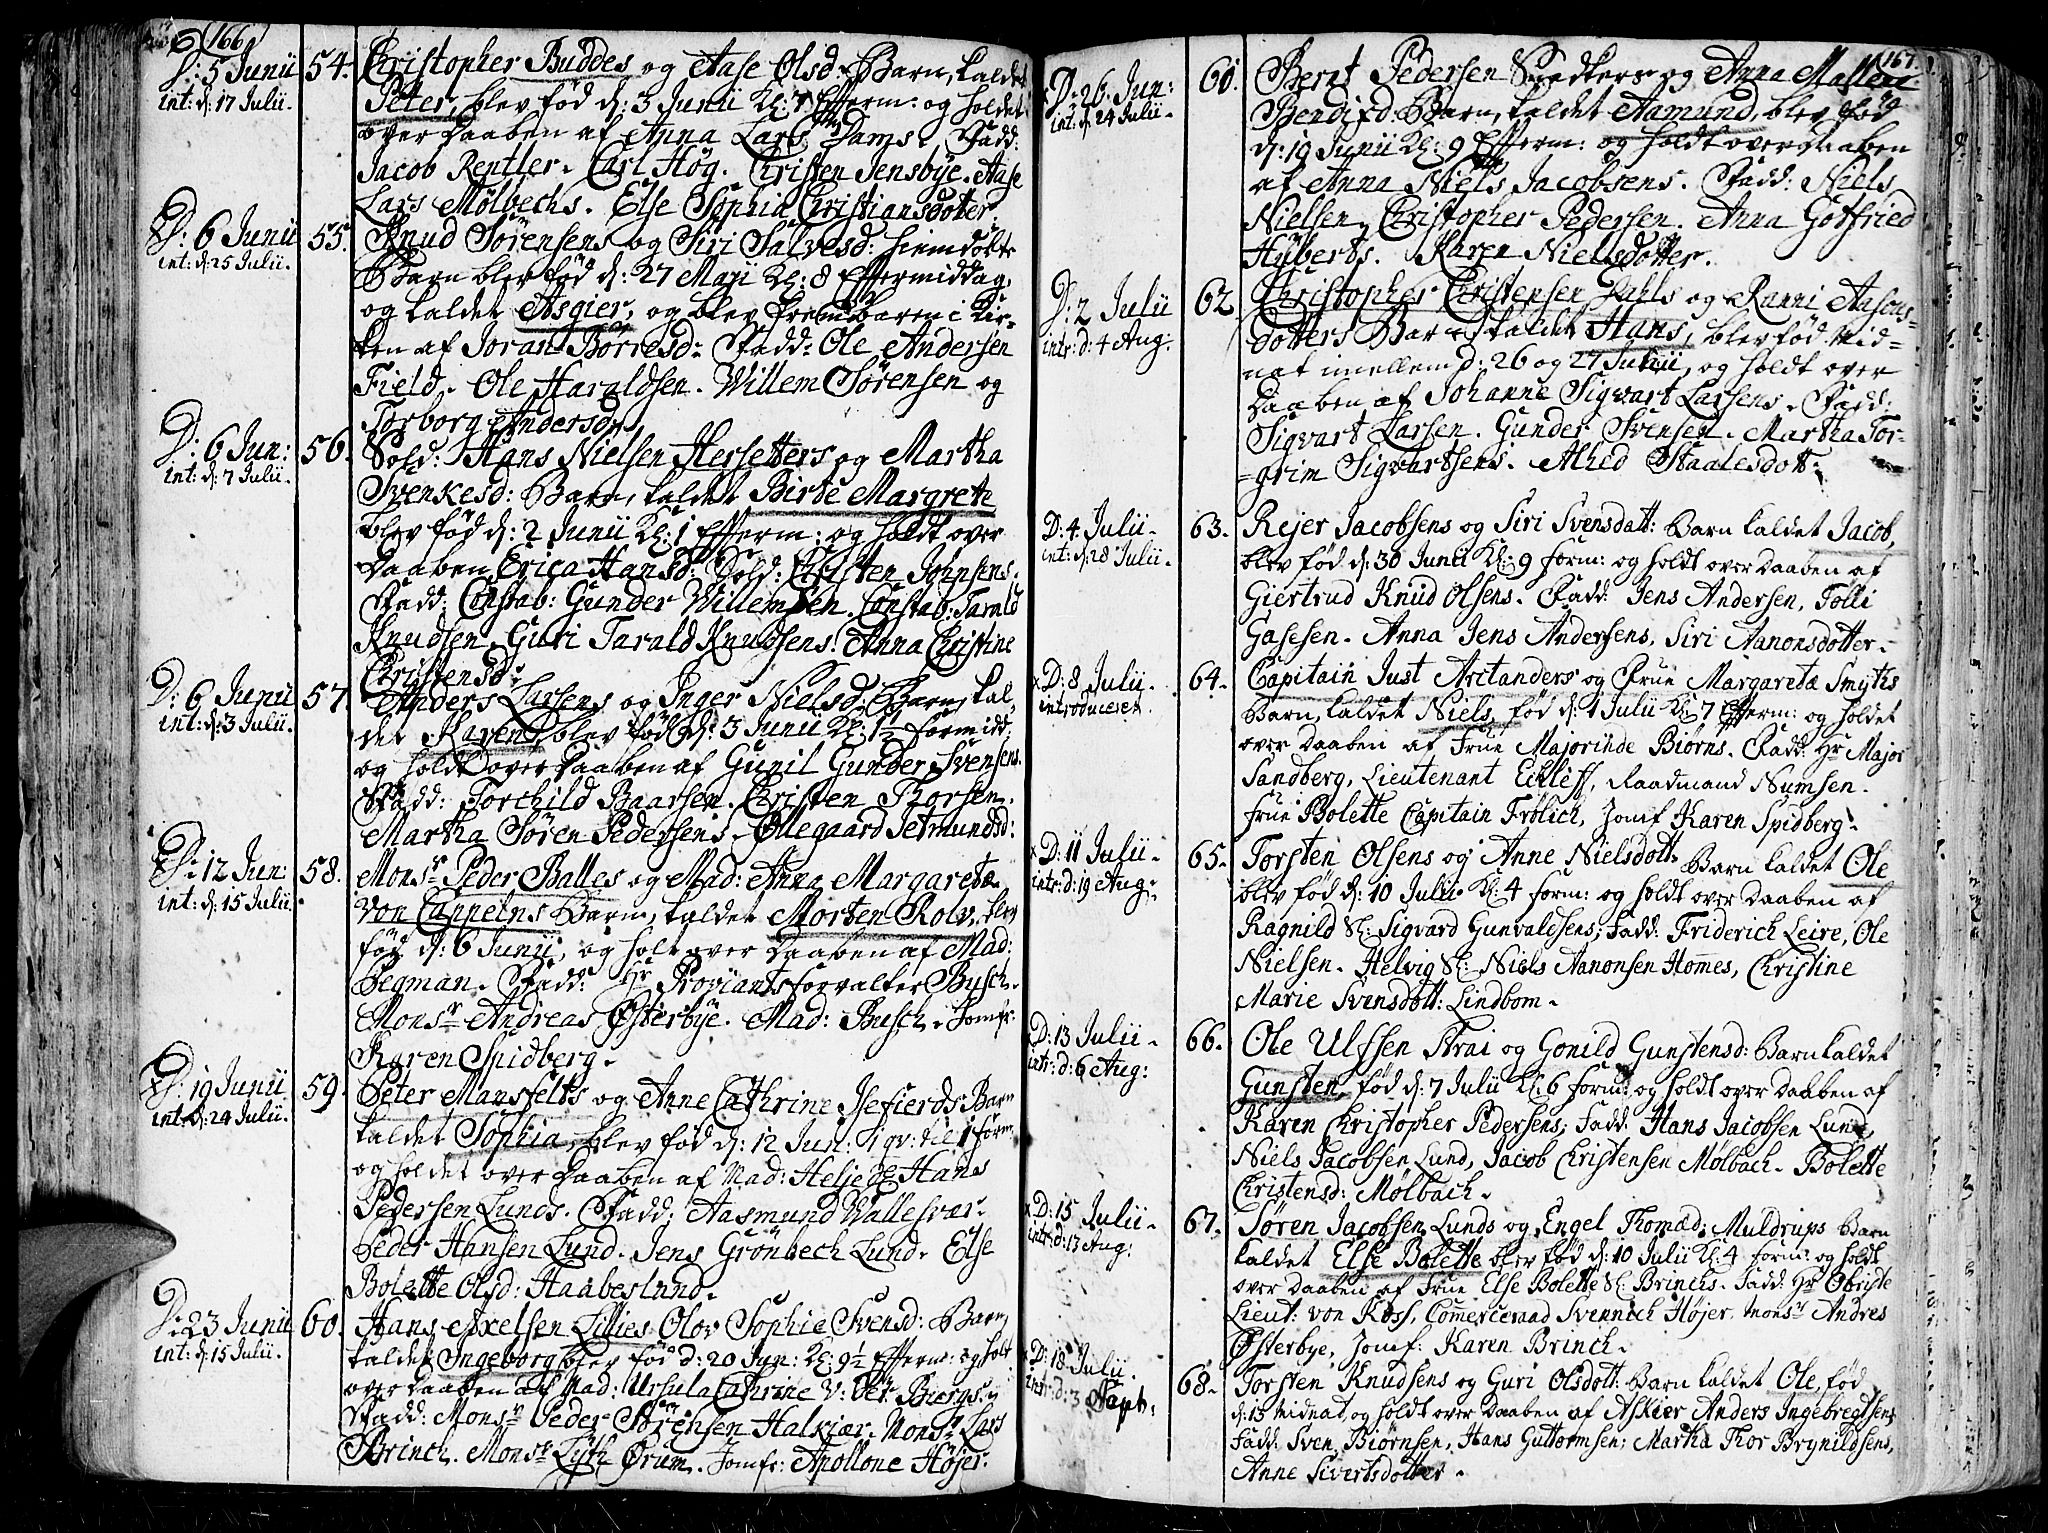 166.
D: 5 Junii 54. Christopher Buddes og Aase Olsd: Barn, kaldet
int: d: 17 Julii. Peter, blev fød d: 3 Junii Kl: 7 Efterm: og holdet
over Daaben af Anna Lars Dams. Fadd:
Jacob Rentler. Carl Høg. Christen Jensbÿe. Aase
Lars Mølbechs. Else Sophia Christiansdotter.
D: 6 Junii 55. Knud Sörensens og Siri Salvesd: hiemdøbte
int: d: 25 Julii. Barn blev fød d: 27 Maji Kl: 8 Eftermiddag,
og kaldet Asgier, og blev frembaren i Kir-
ken af Joran Börresd: Fadd: Ole Andersen
Field. Ole Haraldsen. Willem Sørensen og
Torborg Andersd:
D: 6 Jun: 56. Sold: Hans Nielsen Hersetters og Martha
int: d: 7 Julii. Svenkesd: Barn, kaldet Birte Margrete
blev fød d: 2 Junii Kl: 1 Efterm: og holdt over
Daaben Erica Hansd: Sold: Christen Johnsens.
Fadd: Constab: Gunder Willemsen. Constab: Tarald
Knudsen. Guri Tarald Knudsens. Anna Christine
Christensd:
D: 6 Junii 57. Anders Larsens og Inger Nielsd: Barn, kal-
int: d: 3 Julii. det Karen, blev fød d: 3 Junii Kl: 1½ formidt:
og holdt over Daaben af Gunil Gunder Svensens.
Fadd: Torchild Baarsen. Christen Thorsen.
Martha Søren Pedersens. Ollegaard Jetmundsd:
D: 12 Jun: 58. Monsr Peder Balles og Mad: Anna Margareta
int: d: 15 Julii. von Cappelns Barn, kaldet Morten Rolv, blev
fød d: 6 Junii, og holt over Daaben af Mad:
Segman. Fadd: Hr Proviantsforvalter Bysch.
Monsr Andreas Østerbÿe. Mad: Busch. Jomfr:
Karen Spidberg.
D: 19 Junii 59. Peter Mansfelts og Anne Cathrine Isefierds Barn
int: d: 24 Julii. kaldet Sophia, blev fød d: 12 Jun: 1 qv: til 1 form:
og holdet over Daaben af Mad: Helje Sl: Hans
Pedersen Lunds. Fadd: Aasmund Wallesvær.
Peder Hansen Lund. Jens Grönbech Lund. Else
Bolette Olsd: Haabeslund.
D: 23 Junii 60. Hans Axelsen Lillies Olov Sophie Svensd: Barn,
int: d: 15 Julii. kaldet Ingeborg blev fød d: 20 Jun: Kl: 9½ Efterm: og holt
over Daaben af Mad: Ursula Cathrine v: der Biergs.
Fadd: Monsr Peder Sörensen Halkiær. Monsr Lars
Brinch. Monsr Lÿth Ørum. Jomfr: Apollone Højer.
167.
D: 26. Jun: 61. Bernt Pedersen Snedkers og Anna Mallene
int: d: 24 Julii. Bendixd: Barn, kaldet Aamund, blev fød
d: 19 Junii Kl: 9 Efterm: og holdt over Daaben
af Anna Niels Jacobsens. Fadd: Niels
Nielsen, Christopher Pedersen. Anna Gotfried
Hüberts. Karen Nielsdotter.
D: 2 Julii 62. Christopher Christensen Dahls og Ranni Aasens-
intr: d: 4 Aug: dotters Barn kaldet Hans, blev fød Mid-
nat imellem d: 26 og 27 Junii, og holdt over
Daaben af Johanne Sigvart Larsens. Fadd:
Sigvart Larsen. Gunder Svensen. Martha Tor-
=grim Sigvartsens. Alhed Staalesdott:
D: 4 Julii 63. Rejer Jacobsens og Siri Svensdatt: Barn kaldet Jacob,
int: d: 28 Julii. blev fød d: 30 Junii Kl: 9 form: og holdt over Daaben af
Giertrud Knud Olsens. Fadd: Jens Andersen, Tolli
Gasesen. Anna Jens Andersens, Siri Aanonsdotter.
D: 8 Julii. 64. Capitain Just Arctanders og Frue Margareta Smyths
introduceret. Barn, kaldet Niels, fød d: 1 Julii Kl: 7 Efterm: og holdet
over Daaben af Frue Majorinde Biørns. Fadd: Hr Major
Sandberg, Lieutenant Eckleff, Raadmand Numsen.
Frue Bolette Capitain Frølich, Jomf Karen Spidberg.
D: 11 Julii 65. Torsten Olsens og Anne Nielsdott: Barn kaldet Ole
intr: d: 19 Aug: blev fød d: 10 Julii Kl: 4 form: og holdt over Daaben af
Ragnild Sl: Sigvard Gunvaldsens; Fadd: Friderich Leire, Ole
Nielsen. Helvig Sl: Niels Aanonsen Homes, Christine
Marie Svensdott: Lindbom.
D: 13 Julii 66. Ole Ulfsen Strai og Gonild Gunstensd: Barn kaldet
intr: d: 6 Aug: Gunsten, fød d: 7 Julii Kl: 6 form: og holdt over Daaben af
Karen Christopher Pedersens; Fadd: Hans Jacobsen Lund,
Niels Jacobsen Lund, Jacob Christensen Mølbach. Bolette
Christensd: Mølbach.
D: 15 Julii 67. Søren Jacobsen Lunds og Engel Thomæd: Muldrups Barn
intr: d: 13 Aug: kaldet Else Bolette blev fød d: 10 Julii Kl: 4 form: og holdt
over Daaben af Frue Else Bolette Sl: Brinchs. Fadd: Hr Obriste
Lieut: von Koss, Comerceraad Svennich Højer, Monsr Andres
Østerbye, Jomf: Karen Brinch.
D: 18 Julii. 68. Torsten Knudsens og Guri Olsdott: Barn kaldet Ole, fød
intr: d: 3 Sept: d: 15 Midnat, og holdt over Daaben af Askier Anders Ingebregtsens
Fadd: Sven Biørnsen, Hans Guttormsen; Martha Thor Brynildsens,
Anne Sivertsdotter.